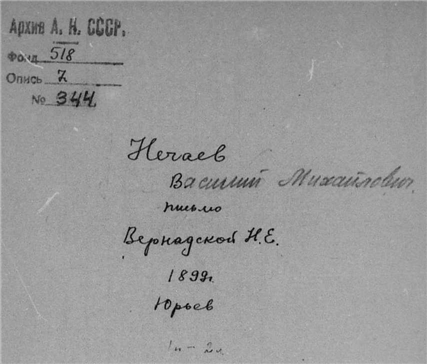 Архив А. Н. СССР.
Фонд 518
Опись 7
№ 344.
Нечаев
Василий Михайлович.
письмо
Вернадской Н.Е.
1899г.
Юрьев
1п - 2л